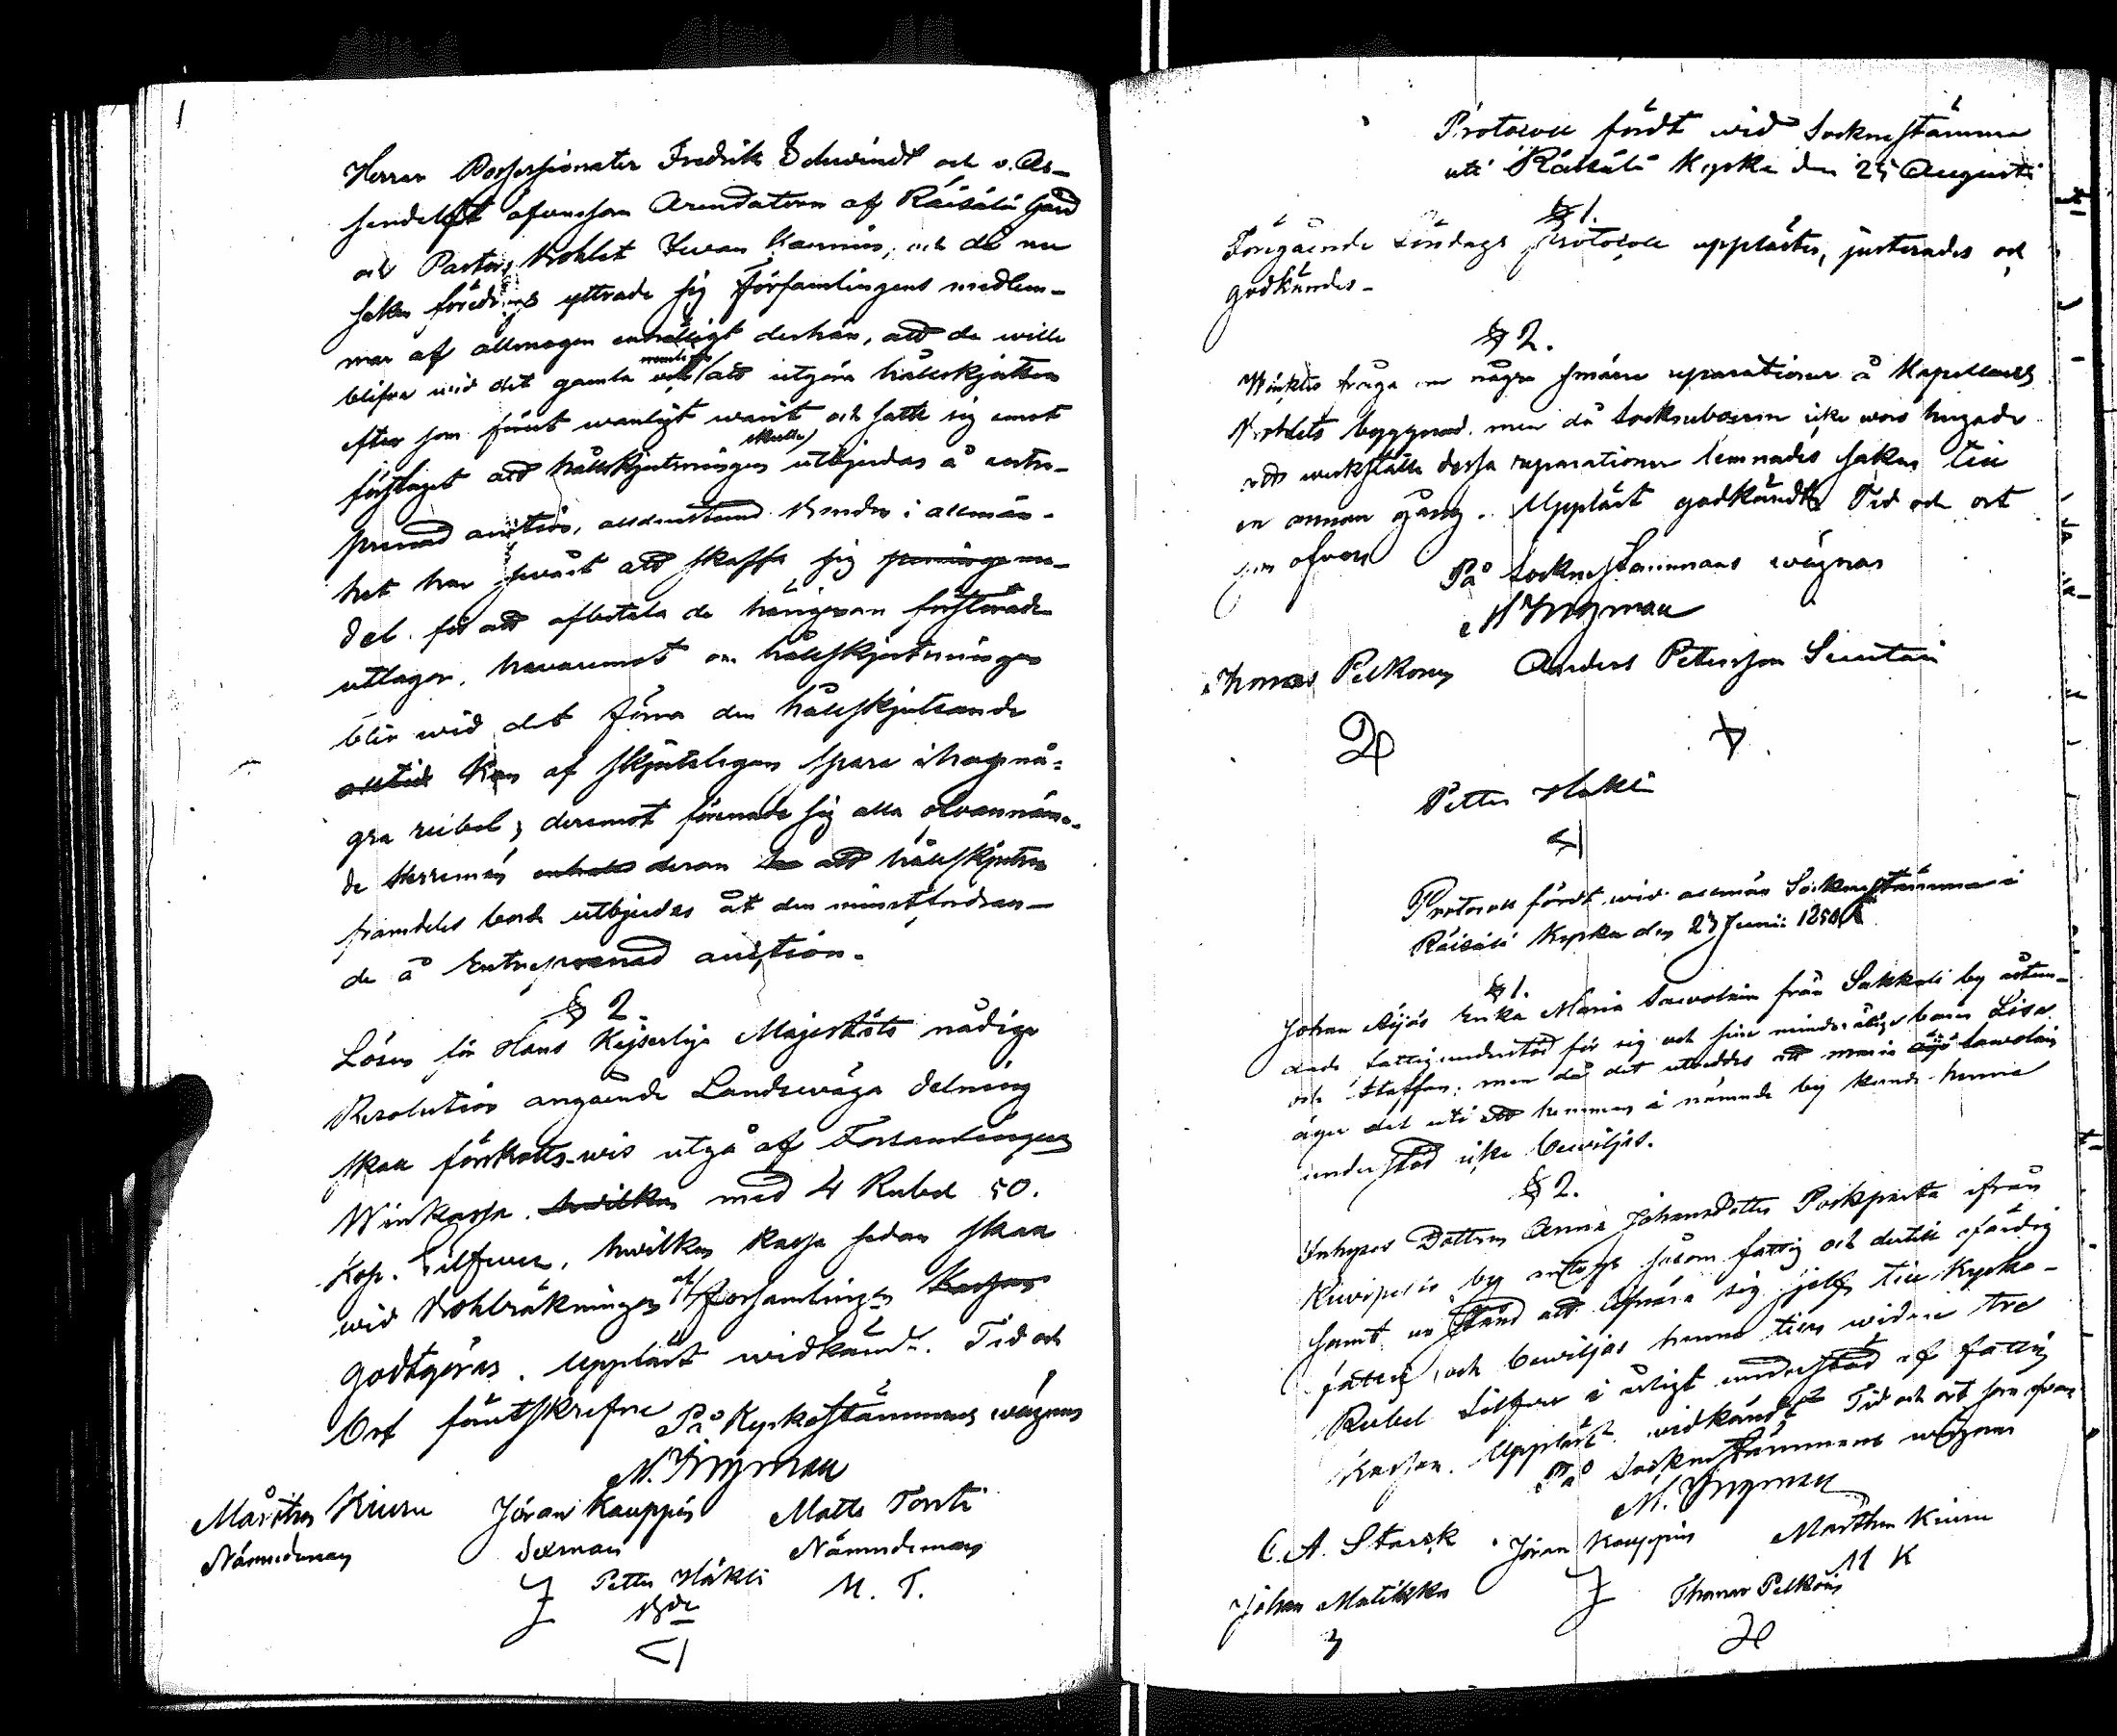 Herrar Possessionater Fredrik Schwindt och v. As-
sendelft äfvensom Arendatorn af Räisälä Gård
och Pastors Bohlet Johan Kaurnin, och då nu
saken föredrogs yttrade sig Församlingens medlem-
mar af allmogen enhälligt derhän, att de wille
blifva wid det gamla nemligen att utgöra hållskjutsen
efter som förut wanligt warit och satte sig emot
förslaget att hållskjutsningen skulle utbjudas å entre-
prenad auction, alldenstund bonden i allmän-
het har swårt att skaffa sig penninge me-
del för att afbetala de härigenom förstorade
utlagor, hwaremot om hållskjutsningen
blir wid det förra den hållskjutsande
alltid kan af skjutslegan spara ihop nå-
gra rubel; deremot förenade sig alla ofvannämn-
de Herremän derom att hållskjutsen
framdeles borde utbjudas åt den minstfordran-
de å Entreprenad auction.
§ 2.
Lösen för Hans Kejserliga Majestäts nådiga
Resolution angående Landswäga delning
skall förskotts-wis utgå af Församlingens
Winkassa hwilken med 4 Rubel 50.
Kop. Silfwer, hwilken kassa sedan skall
wid Bohlräkningen af församlingen kassan
godtgöras. Uppläst widkändt. Tid och
Ort förutskrefne
På Kyrkostämmans wägnar
N. Ingman
Mårten Kiuru Jöran Kauppin Matts Torsti
Nämndeman Sexman Nämndeman
Petter Häkli M. T.
Bde
Protocoll fördt wid Socknestämma
uti Räisälä Kyrka den 25 Augusti
§ 1.
Föregående Söndags Protocoll upplästes, justerades och
godkändes-
§ 2.
Wäcktes fråga om några smärre reparationer å Kapellans
Bohlets byggnad. men då Sockneboerne icke woro hugade
att werkställa dessa reparationer lemnades saken till
en annan gång. Uppläst godkändt. Tid och ort
som ofvan
På Socknestämmans wägnar
N Ingman
Thomas Pelkonen Anders Petersson
Petter Häkli
Protocoll fördt wid allmän Sockne Stämma i
Räisälä Kyrka den 23 Junii
§ 1.
Johan Äijäs Enka Maria Sawolain från Sakkali by åstun-
dade fattigunderstöd för sig och sine minderårige barn Lisa
och Staffan; men då det utreddes att Maria Sawolain
äger del uti ett hemman i nämnde by kunde henne
understöd icke bewiljas.
§ 2.
Inhyses Dottren Anna Johansdotter Poikpartta ifrån
Kiwipelto by antogs såsom fattig och dertill ofärdig
samt ur stånd att lifnära sig sjelf till Kyrko-
fattig, och bewiljas henne tills widare tre
Rubel Silfver i årligt understöd af fattig
kassan. Uppläst widkändt Tid och ort som ofvan
På Socknestämmans wägnar
N. Ingman
C. A. Starck Jöran Kauppin Mårthen Kiuru
M K
Johan Matikka Thomas Pelkonen